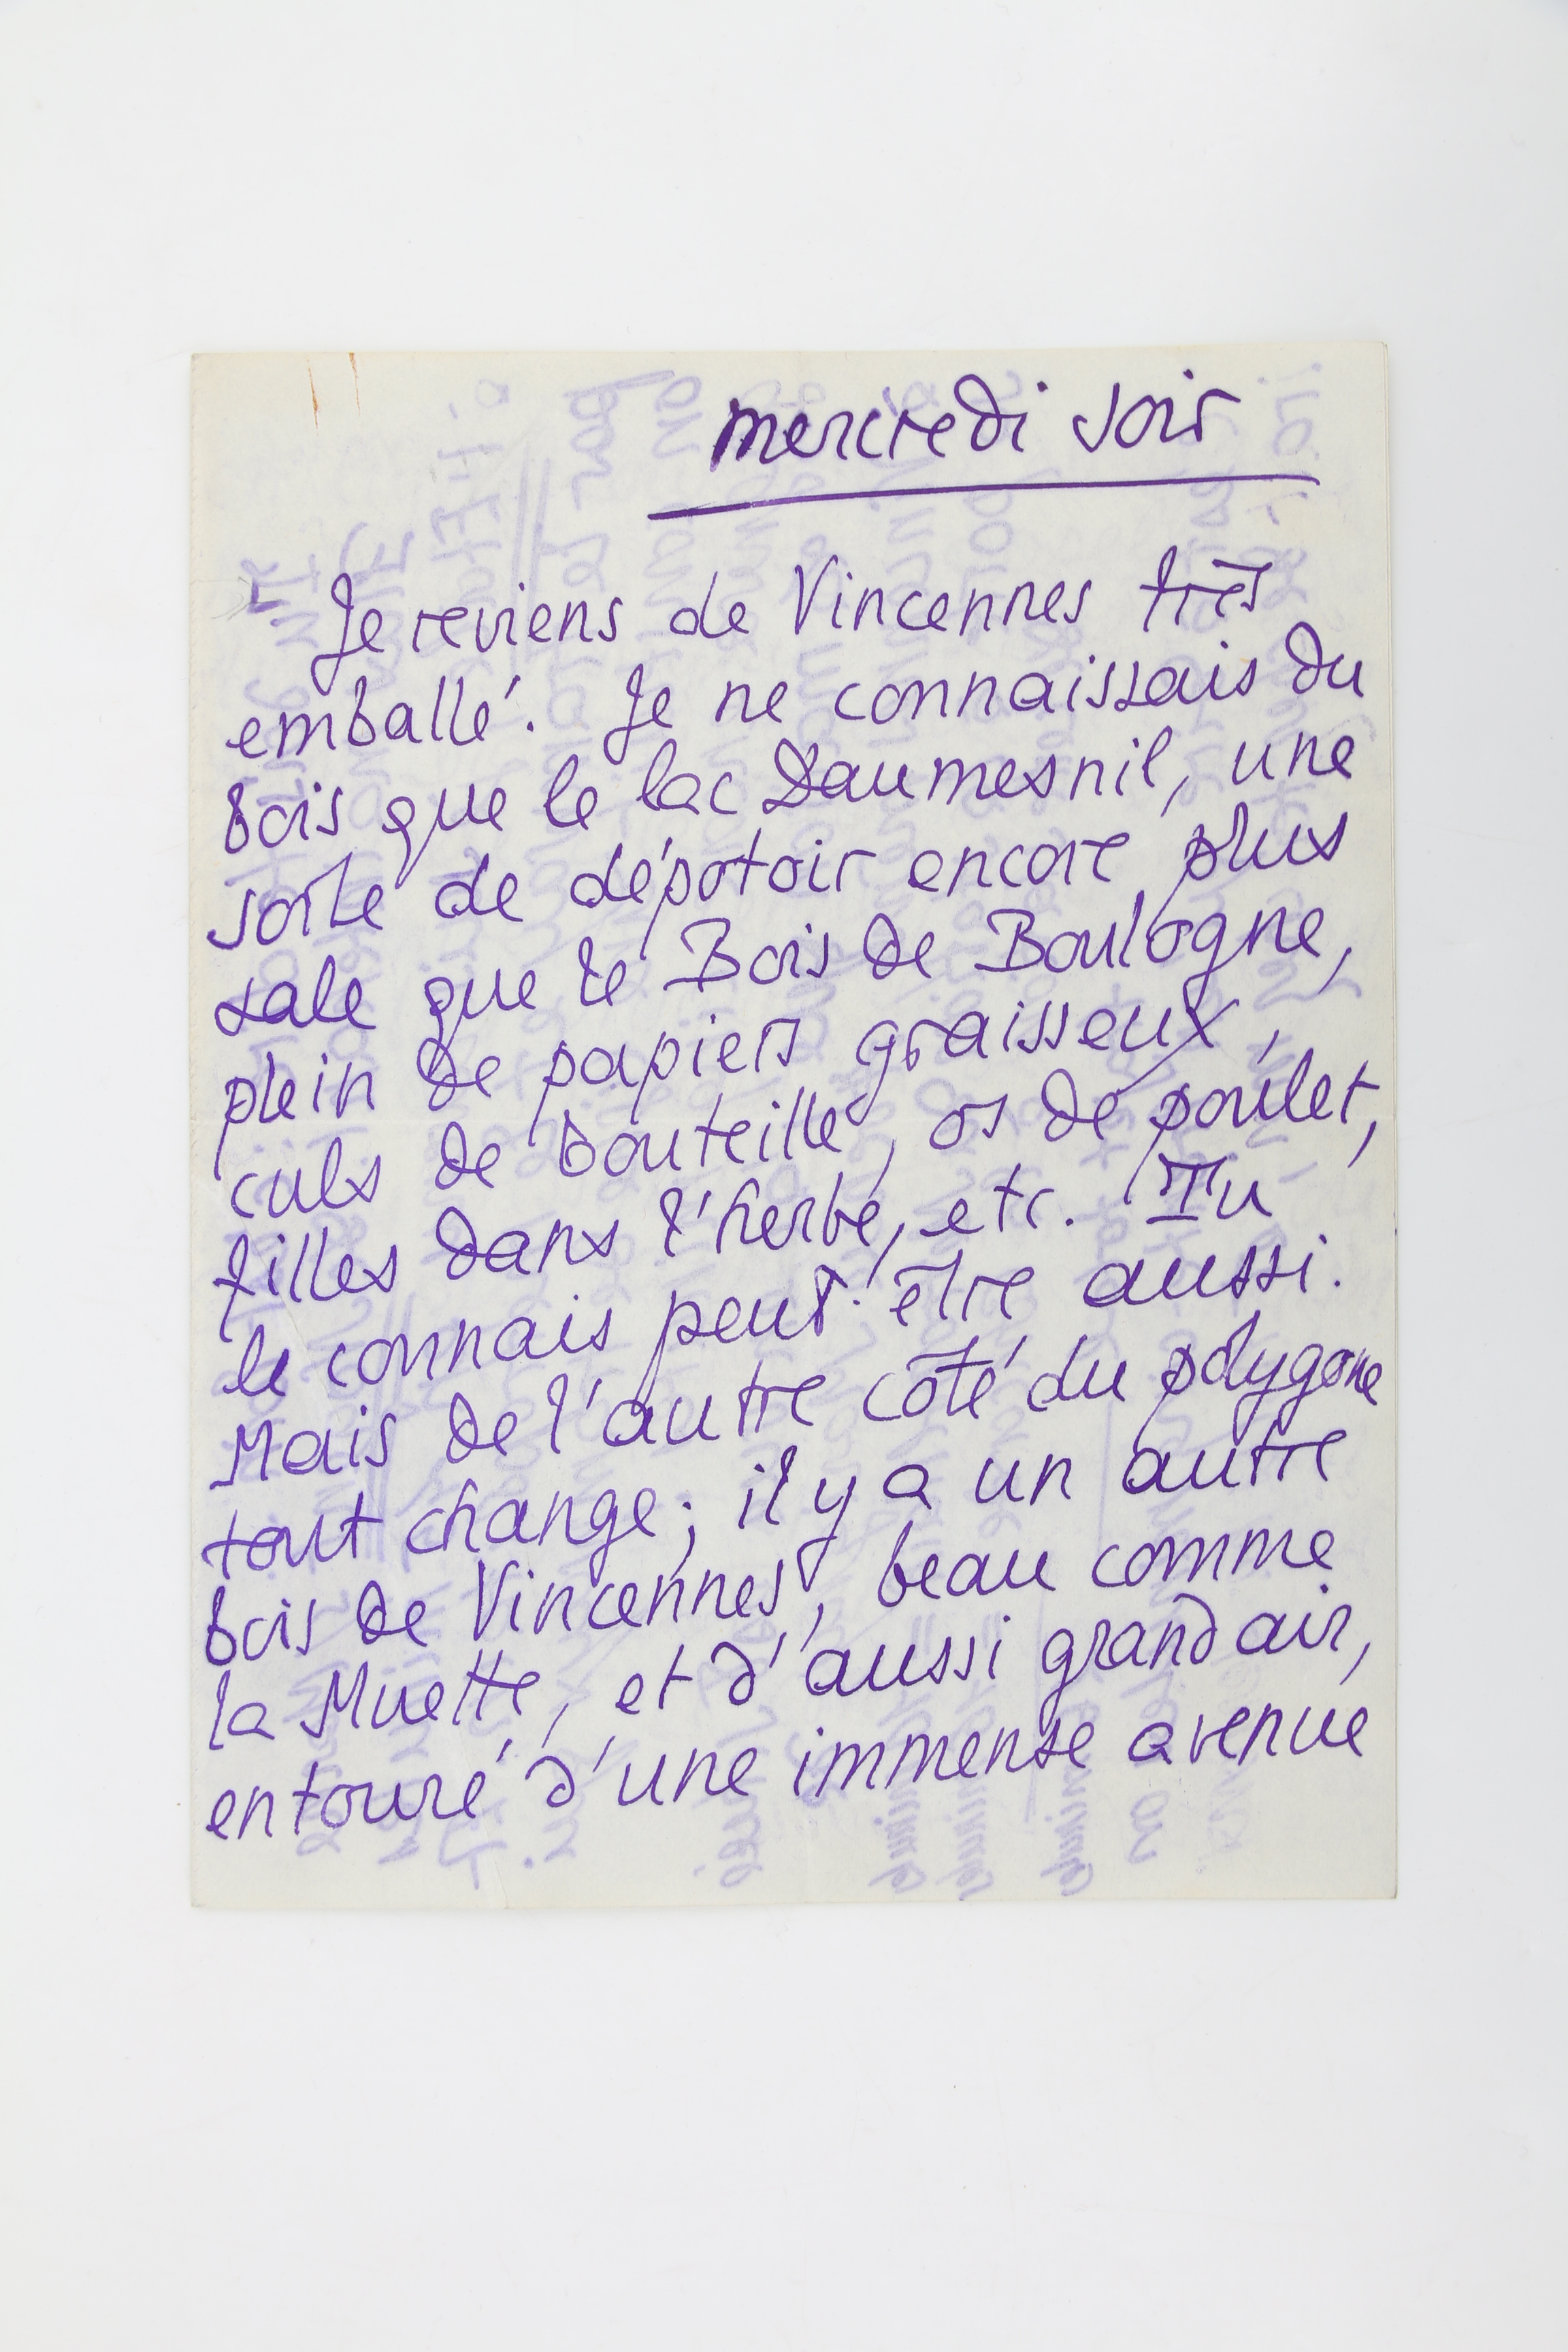 mercredi soir
Je reviens de Vincennes très
emballé. Je ne connaissais du
bois que le lac Daumesnil, une
sorte de dépotoir encore plus
sale que le Bois de Boulogne,
plein de papiers graisseux,
culs de bouteille, os de poulet,
filles dans l'herbe, etc. Tu
le connais peut-être aussi.
Mais de l'autre côté du polygone
tout change; il y a un autre
bois de Vincennes, beau comme
la Muette, et d'aussi grand air,
entouré d'une immense avenue